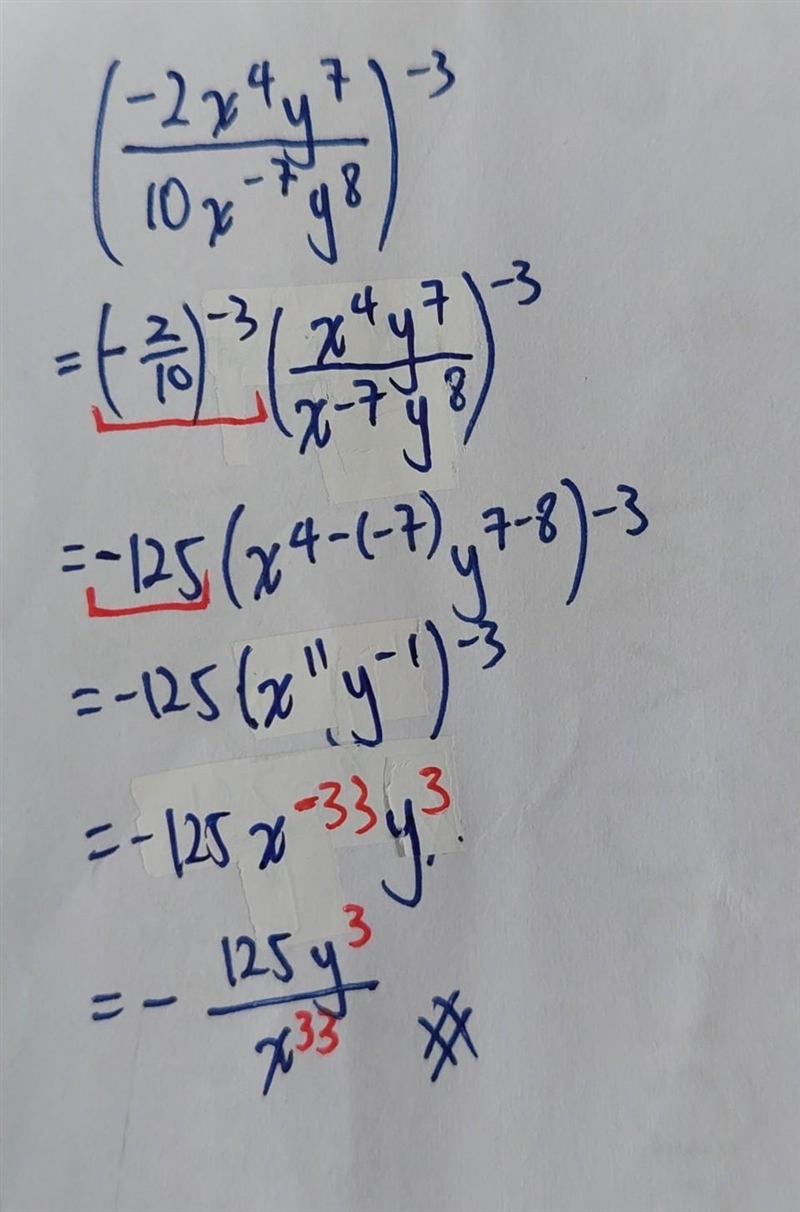 (\frac{-2x^4y^7}{10x^{-7}y^8})^{-3}
= (-\frac{2}{10})^{-3} (\frac{x^4y^7}{x^{-7}y^8})^{-3}
= -125 (x^{4-(-7)} y^{7-8})^{-3}
= -125 (x^{11} y^{-1})^{-3}
= -125 x^{-33} y^3
= - \frac{125y^3}{x^{33}}